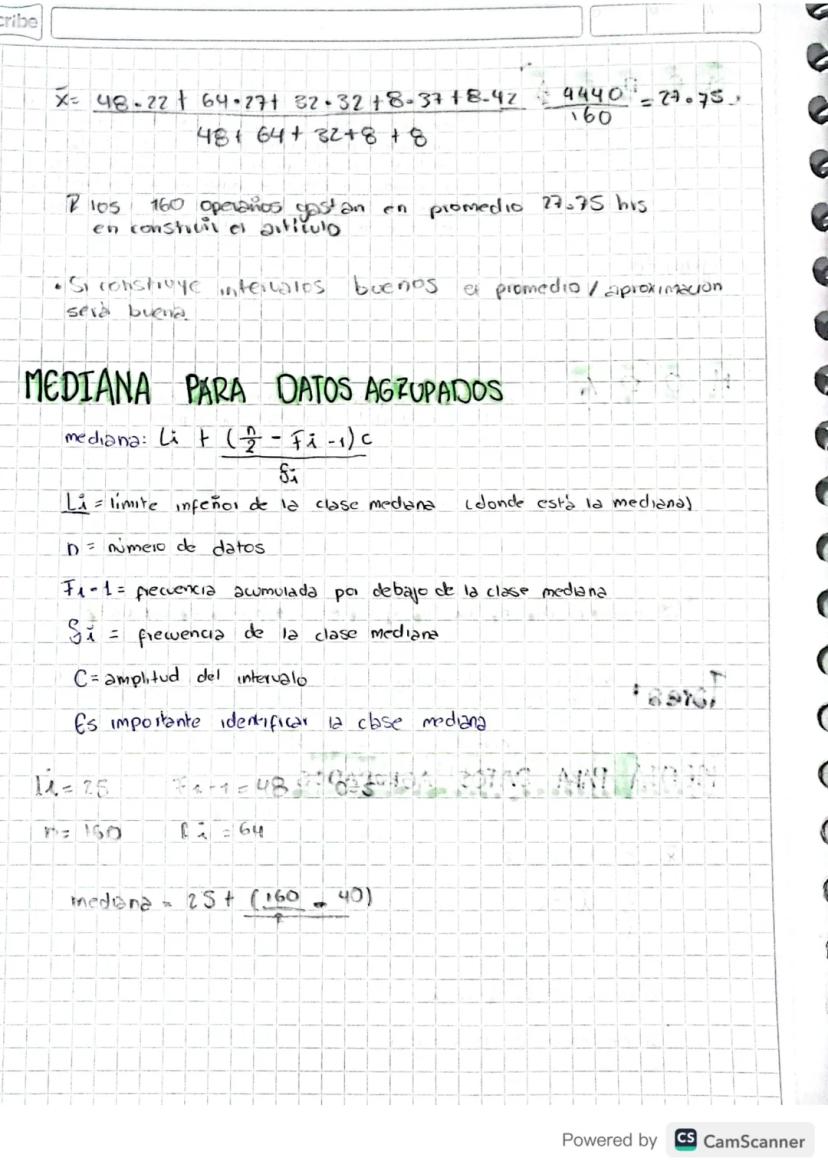 cribe
x̄= 48.22 + 64.27+ 32.32 +8.37 +8.42 = 4440 = 27.75.
48+ 64+ 32+8 +8 160
los 160 operarios gastan en promedio 27.75 hrs
en construir el artículo
• Si construye intervalos buenos el promedio / aproximacion
será buena.
MEDIANA PARA DATOS AGRUPADOS
mediana: Li + (n/2 - Fi -1) c
fi
Li = límite inferior de la clase mediana (donde está la mediana)
n = número de datos
Fi-1 = frecuencia acumulada por debajo de la clase mediana
fi = frecuencia de la clase mediana
C = amplitud del intervalo
Es importante identificar la clase mediana
Li = 25 Fi-1 = 48 c=5
n= 160 fi = 64
mediana = 25 + (160 - 40)
Powered by CS CamScanner